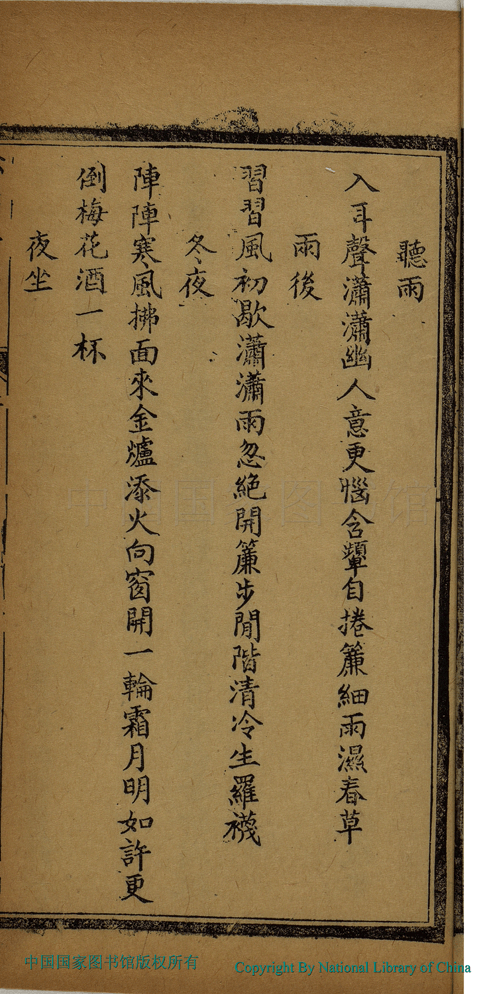 聽雨
入耳聲瀟瀟幽人意更惱含顰自捲簾細雨濕春草
雨後
習習風初歇瀟瀟雨忽絕開簾步閒階清冷生羅襪
冬夜
陣陣寒風拂面來金爐添火向窗開一輪霜月明如許更
倒梅花酒一杯
夜坐
中国国家图书馆
中国国家图书馆版权所有
Copyright By National Library of China